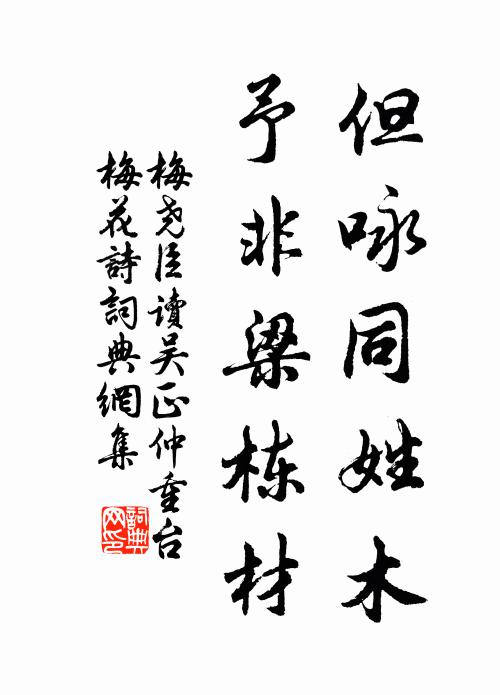 但咏同姓木
予非梁栋材
梅尧臣读吴正仲重台
梅花詩詞典網集
詞典网印